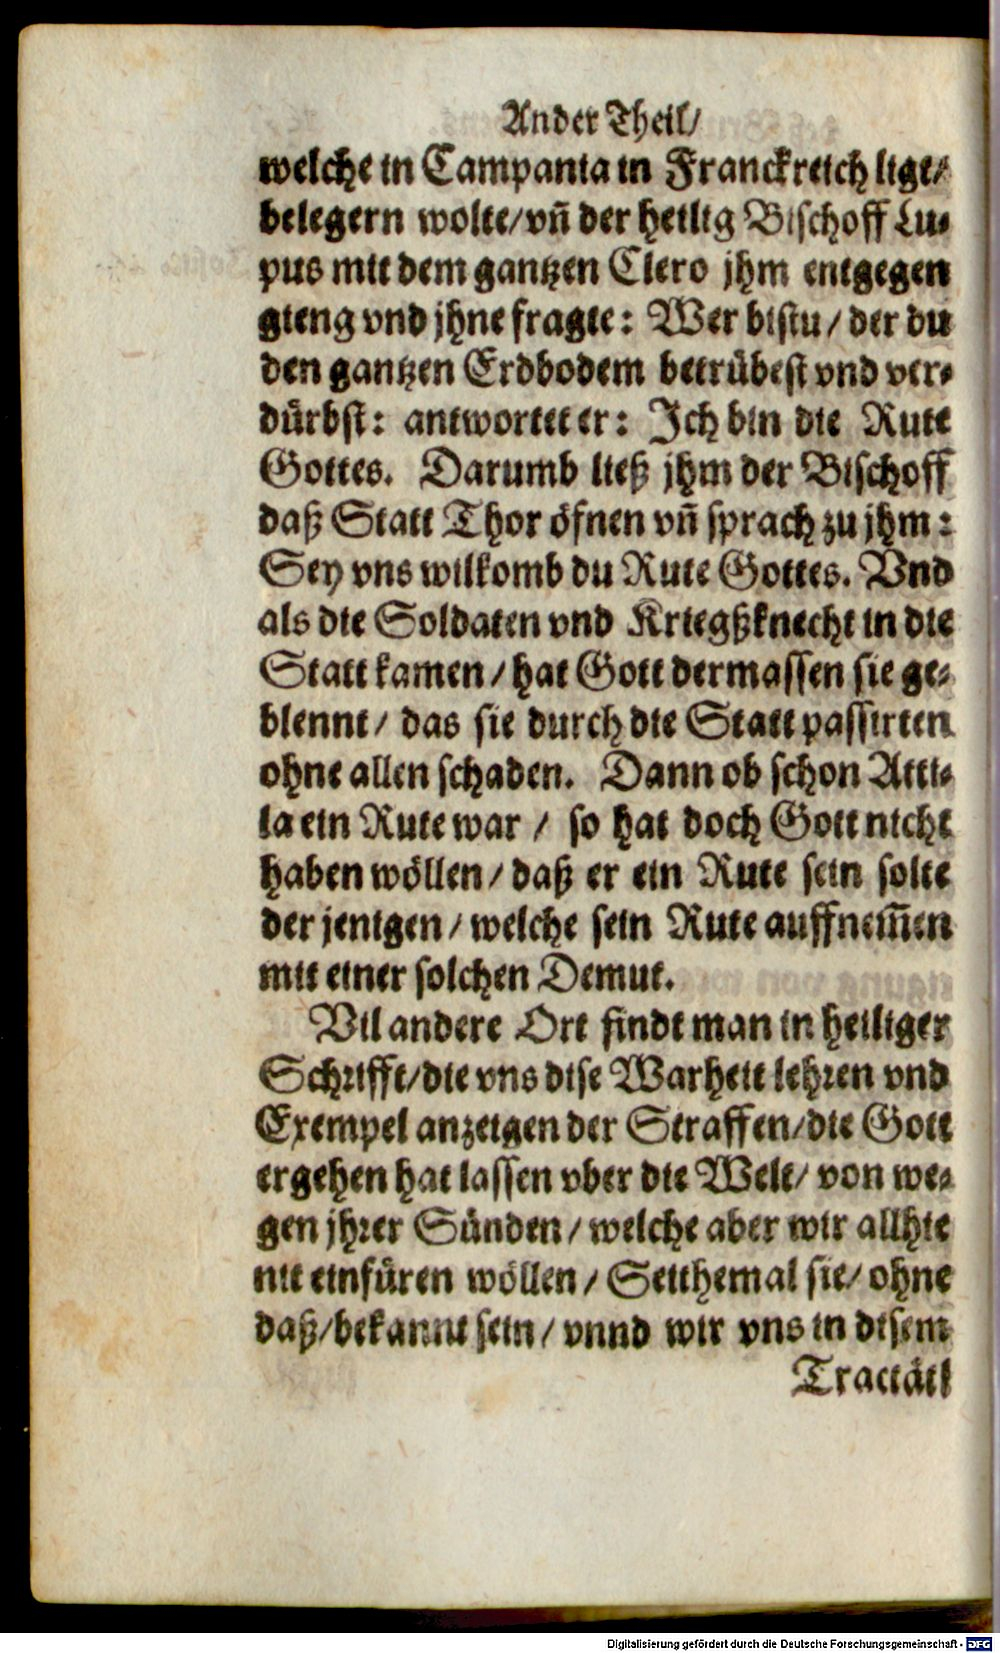 Ander Theil/
welche in Campania in Franckreich ligt/
belegern wolte/vñ der heilig Bischoff Lu-
pus mit dem gantzen Clero jhm entgegen
gieng vnd jhne fragte: Wer bistu/ der du
den gantzen Erdbodem betrübest vnd ver-
dürbst: antwortet er: Ich bin die Rute
Gottes. Darumb ließ jhm der Bischoff
daß Statt Thor öfnen vñ sprach zu jhm:
Sey vns wilkomb du Rute Gottes. Vnd
als die Soldaten vnd Kriegßknecht in die
Statt kamen/ hat Gott dermassen sie ge-
blennt/ das sie durch die Statt passirten
ohne allen schaden. Dann ob schon Atti-
la ein Rute war / so hat doch Gott nicht
haben wöllen/ daß er ein Rute sein solte
der jenigen/ welche sein Rute auffnem̃en
mit einer solchen Demut.
Vil andere Ort findt man in heiliger
Schrifft/die vns dise Warheit lehren vnd
Exempel anzeigen der Straffen/die Gott
ergehen hat lassen vber die Welt/ von we-
gen jhrer Sünden/ welche aber wir allhie
nit einfüren wöllen/ Seithemal sie/ ohne
daß/bekannt sein/ vnnd wir vns in disem
Tractätl
Digitalisierung gefördert durch die Deutsche Forschungsgemeinschaft - DFG